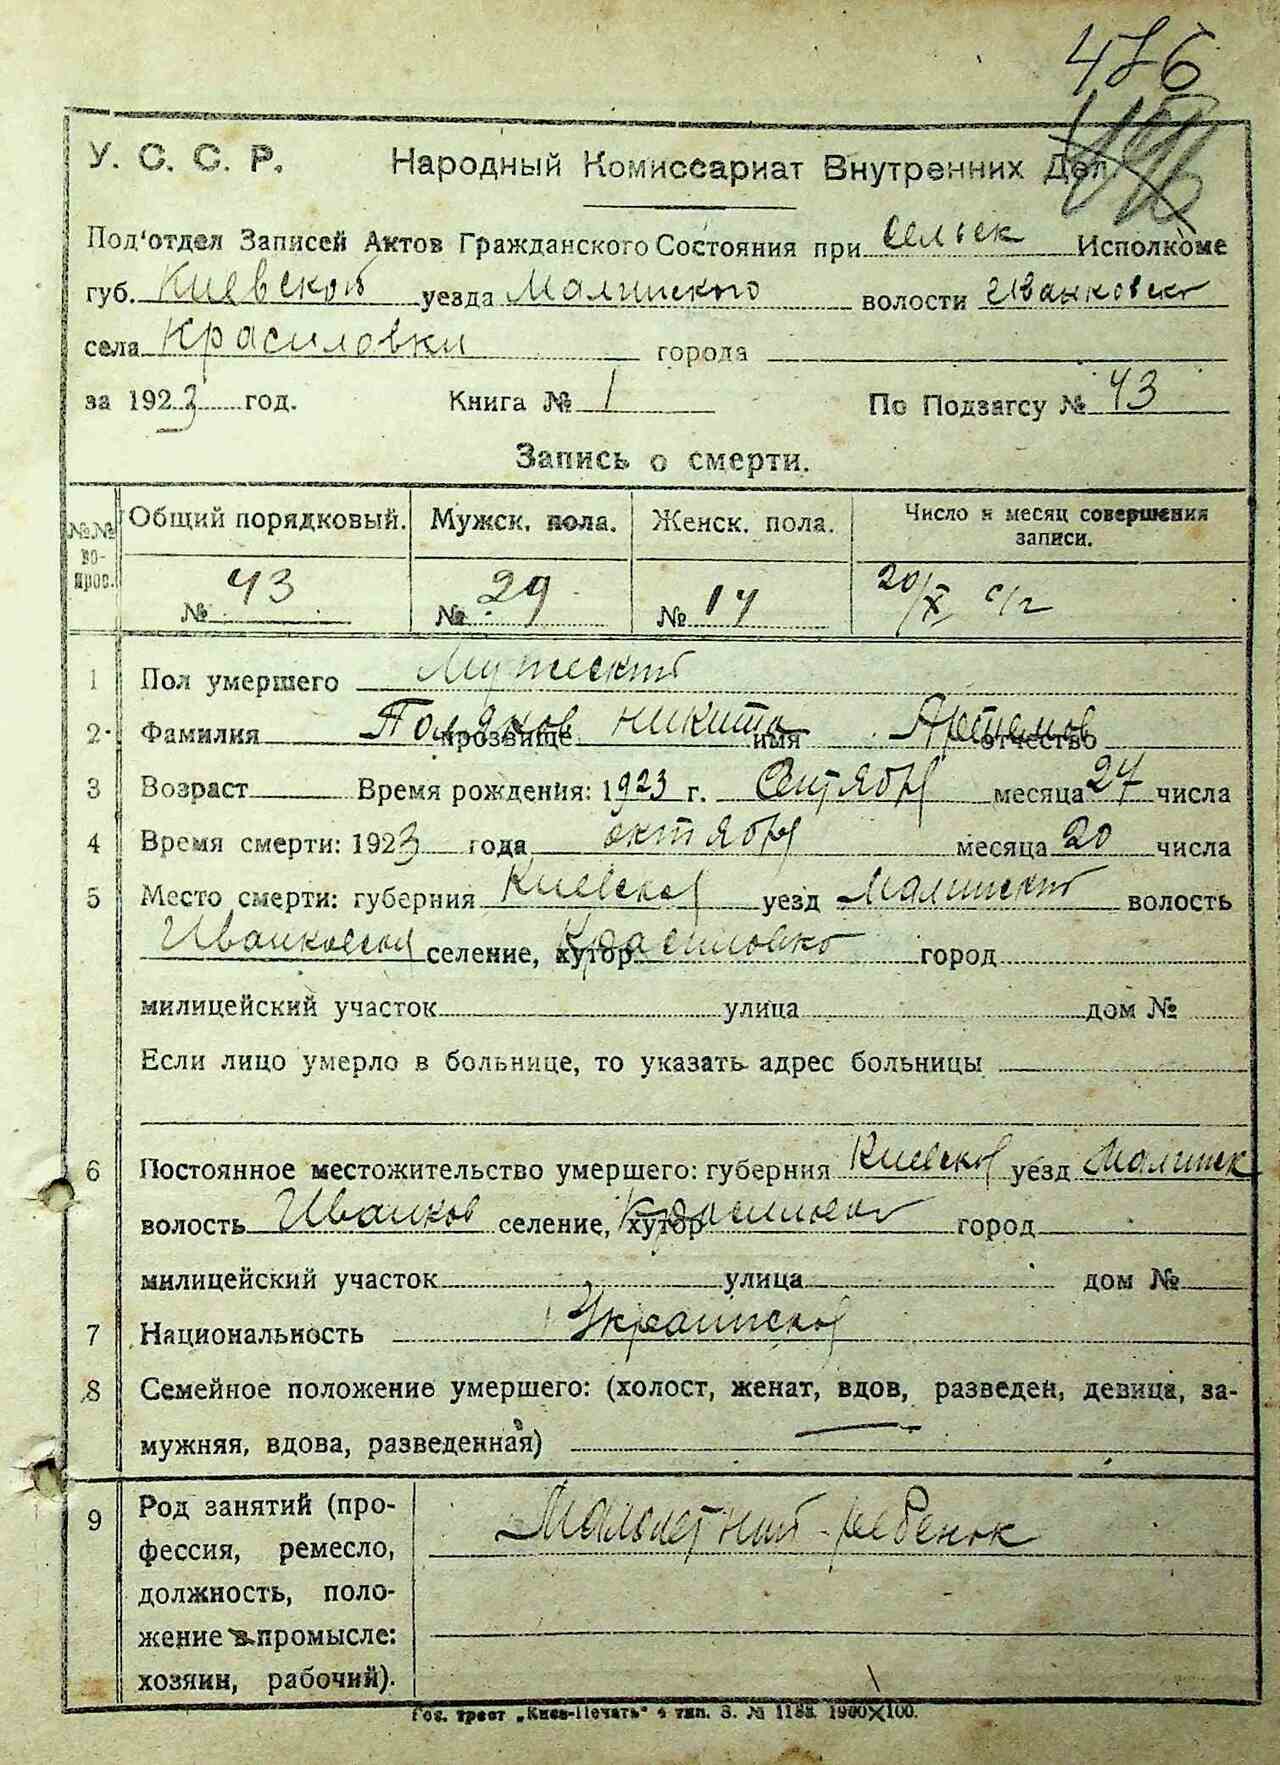 476
У. С. С. Р. Народный Комиссариат Внутренних Дел
Под'отдел Записей Актов Гражданского Состояния при Сельск Исполкоме
губ. Киевской уезда Малинского волости Иванковско
села Красиловки города
за 1923 год. Книга № 1 По Подзагсу № 43
Запись о смерти.
№№ вопрос. Общий порядковый. Мужск. пола. Женск. пола. Число и месяц совершения записи.
№ 43 № 29 № 14 20/X с/г
1 Пол умершего Мужской
2 Фамилия Поляков прозвище Никита имя Артемов отчество
3 Возраст Время рождения: 1923 г. Сентября месяца 27 числа
4 Время смерти: 1923 года октября месяца 20 числа
5 Место смерти: губерния Киевская уезд Малинский волость
Иванковская селение, хутор Красиловка город
милицейский участок улица дом №
Если лицо умерло в больнице, то указать адрес больницы
6 Постоянное местожительство умершего: губерния Киевская уезд Малинск
волость Иванков селение, хутор город
милицейский участок улица дом №
7 Национальность Украинская
8 Семейное положение умершего: (холост, женат, вдов, разведен, девица, за-
мужняя, вдова, разведенная)
9 Род занятий (про- Малолетний - ребенок
фессия, ремесло,
должность, поло-
жение в промысле:
хозяин, рабочий).
Гос. трест „Киев-Печать" 4 тип. З. № 1188. 1900×100.